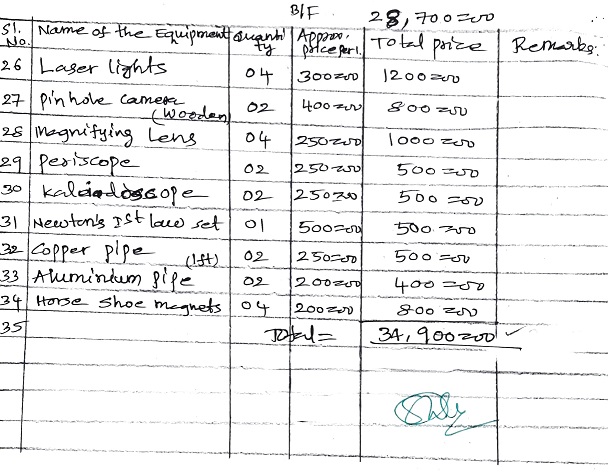 B/F 28,700=00
Sl. No. Name of the Equipment Quantity Approx. price per 1. Total price Remarks.
26 Laser lights 04 300=00 1200=00
27 Pinhole camera (Wooden) 02 400=00 800=00
28 Magnifying Lens 04 250=00 1000=00
29 Periscope 02 250=00 500=00
30 Kaleidoscope 02 250=00 500=00
31 Newton's Ist law set 01 500=00 500=00
32 Copper pipe (1ft) 02 250=00 500=00
33 Aluminium pipe 02 200=00 400=00
34 Horse shoe magnets 04 200=00 800=00
35 Total= 34,900=00